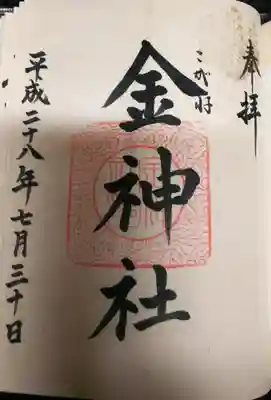 奉拝
こがね
金神社
平成二十八年七月三十日